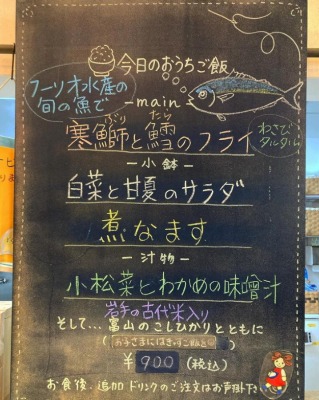 今日のおうちご飯
フーリオ水産の
旬の魚で
-main-
ぶり たら
寒鰤と鱈のフライ
わさび
タルタル
-小鉢-
白菜と甘夏のサラダ
煮なます
-汁物-
小松菜とわかめの味噌汁
岩手の古代米入り
そして…富山のこしひかりとともに
¥900(税込)
お食後、追加ドリンクのご注文はお声掛け下さい